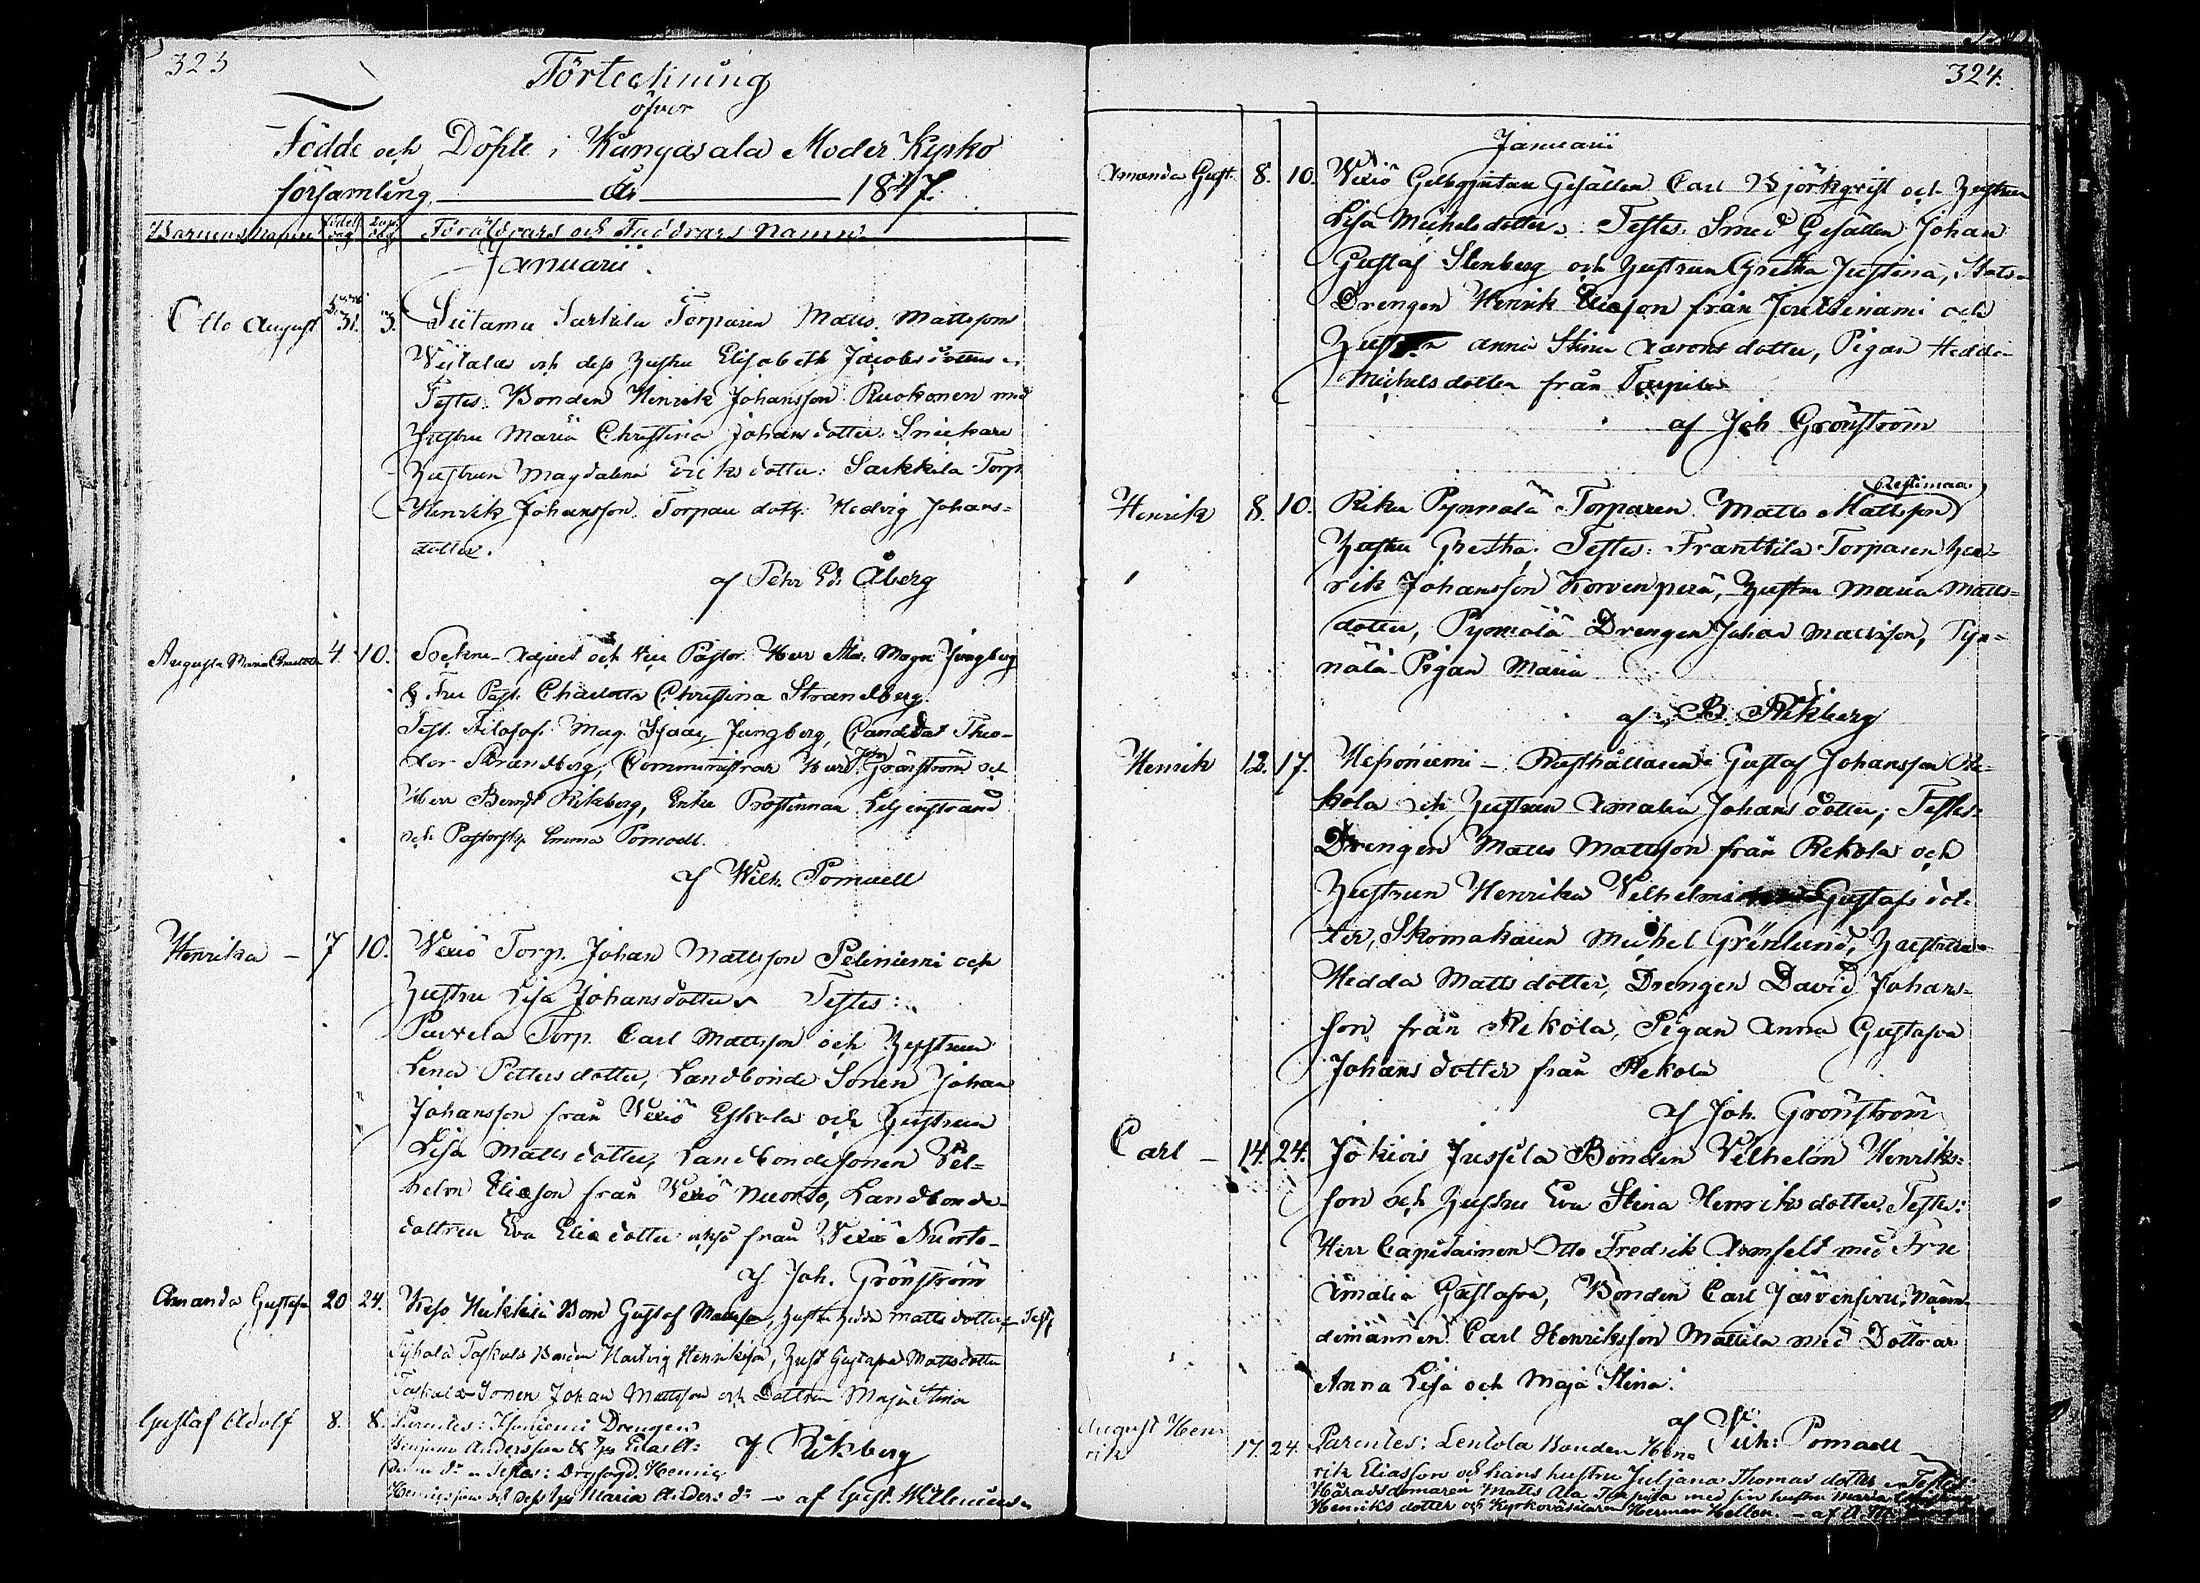 323
Förteckning
öfver
Födde och Döpte i Kangasala Moder Kyrko
församling år 1847.
Barnens namn Födel. dag Dop. dag Föräldrars och Faddrars namn.
Januarii.
Otto August 31. 3. Liitama Sarkila Torparen Matts Mattsson
och dess Hustru Elisabeth Jacobsdotter.
Testes: Bonden Henrik Johansson Ruokonen med
Hustru Maria Christina Johansdotter. Snickare
Hustrun Magdalena Eriksdotter: Sarkkila Torp.
Henrik Johansson. Torpare dott. Hedvig Johans-
dotter.
af Pehr Ed. Åberg
Augusta Maria Charlotta 4. 10. Sockne-Adjunct och Vice Pastor Herr Alex. Magn. Ljungberg
& Fru Past. Charlotta Christina Strandberg.
Test. Filosof. Mag. Isaac Jungberg, Candidat Theo-
dor Strandberg, Comministrar Herr Joh. Grönström och
Herr Berndt Rikberg, Enke Prostinnan Liljenstrand
och Emma Pomoell.
af Wilh. Pomoell
Henrika – 7 10. Vexiö Torp. Johan Mattsson Peltniemi och
Hustru Lisa Johansdotter Testes:
Pavvela Torp. Carl Mattsson och Hustrun
Lena Pettersdotter, Landbonde Sonen Johan
Johansson från Vexiö Eskola och Hustrun
Lisa Mattsdotter, Landbondesonen Vil-
helm Eliasson från Vexiö Nuorto, Landbonde-
dottren Eva Eliædotter också från Vexiö Nuorto-
af Joh. Grönström
Amanda Gustafva 20 24. Heikkilä Bond Gustaf Mattsson, Hustr. Hedda Mattsdotter, – Test.
Taskula Bonden Hartvig Henriksson, Hust Gustafva Mattsdotter
Taskula Sonen Johan Mattsson och Dottren Maja Stina
af Rikberg
Gustaf Adolf 8. 8. Parentes: Drengen
Benjamin Andersson &
Testes:
Maria Anders dr – af Gust. Willenius
324.
Januarii
Amanda Gust. 8. 10. Vexiö Gelbgjutare Gesällen Carl Björkqvist och Hustrun
Lisa Michelsdotter. Testes. Smed Gesällen Johan
Gustaf Stenberg och Hustrun Gretha Justina, Stats-
Drengen Henrik Eliasson från och
Hustrun Anna Stina Aaronsdotter, Pigan Hedda
Michelsdotter från
af Joh Grönström
Henrik 8. 10. Riku Pynnälä Torparen Matts Mattsson
Hustru Gretha. Testes: Franttila Torparen Hen-
rik Johansson Korvenperä, Hustru Maria Matts-
dotter, Pynnälä Drengen Johan Mattsson, Pyn-
nälä Pigan Maria
af B. Rikberg
Henrik 12. 17. Herroniemi – Rusthållaren Gustaf Johansson Re-
kola och Hustrun Amalia Johansdotter; Testes:
Drengen Matts Mattsson från Rekola och
Hustrun Henrika Vilhelmina Gustafsdot-
ter, Skomakaren Michel Grönlund, Hustrun
Hedda Mattsdotter, Drengen David Johans-
son från Rekola, Pigan Anna Gustafva
Johansdotter från Rekola
af Joh. Grönström
Carl – 14. 24. Jokiois Jussila Bonden Vilhelm Henriks-
son och Hustru Eva Stina Henriksdotter. Testes:
Herr Capitainen Otto Fredrik Armfelt med Fru
Amalia Gustafva, Bonden Carl Järvensivu, Nämn-
demannen Carl Henriksson Mattila med Döttrar
Anna Lisa och Maja Stina.
af Vilh: Pomoell
August Hen-
rik 17. 24. Parentes: Lentola Bonden Hen-
rik Eliasson och hans hustru Juljana Thomas dotter – Testes:
Häradsdomaren Matts Ala med sin hustru Maria
Henriks dotter och Kyrkoväktaren Herman Hellen. – af